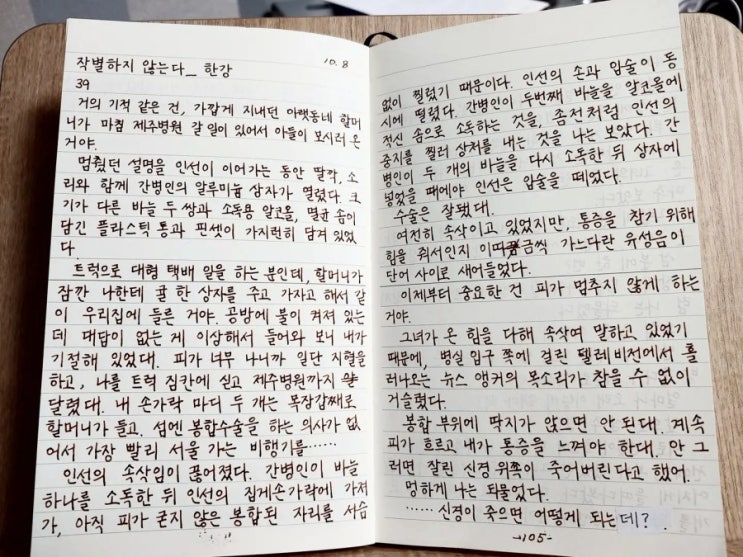 작별하지 않는다_ 한강
10. 8
39
거의 기적 같은 건, 가깝게 지내던 아랫동네 할머
니가 마침 제주병원 갈 일이 있어서 아들이 모시러 온
거야.
멈췄던 설명을 인선이 이어가는 동안 딸깍, 소
리와 함께 간병인의 알루미늄 상자가 열렸다. 크
기가 다른 바늘 두 쌍과 소독용 알코올, 멸균 솜이
담긴 플라스틱 통과 핀셋이 가지런히 담겨 있었
다.
트럭으로 대형 택배 일을 하는 분인데, 할머니가
잠깐 나한테 귤 한 상자를 주고 가자고 해서 같
이 우리집에 들른 거야. 공방에 불이 켜져 있는
데 대답이 없는 게 이상해서 들어와 보니 내가
기절해 있었대. 피가 너무 나니까 일단 지혈을
하고, 나를 트럭 짐칸에 싣고 제주병원까지
달렸대. 내 손가락 마디 두 개는 목장갑째로
할머니가 들고. 섬엔 봉합수술을 하는 의사가 없
어서 가장 빨리 서울 가는 비행기를……
인선의 속삭임이 끊어졌다. 간병인이 바늘
하나를 소독한 뒤 인선의 집게손가락에 가져
가, 아직 피가 굳지 않은 봉합된 자리를 서슴
없이 찔렀기 때문이다. 인선의 손과 입술이 동
시에 떨렸다. 간병인이 두번째 바늘을 알코올에
적신 솜으로 소독하는 것을, 좀전처럼 인선의
중지를 찔러 상처를 내는 것을 나는 보았다. 간
병인이 두 개의 바늘을 다시 소독한 뒤 상자에
넣었을 때에야 인선은 입술을 떼었다.
수술은 잘됐대.
여전히 속삭이고 있었지만, 통증을 참기 위해
힘을 줘서인지 이따금씩 가느다란 유성음이
단어 사이로 새어들었다.
이제부터 중요한 건 피가 멈추지 않게 하는
거야.
그녀가 온 힘을 다해 속삭여 말하고 있었기
때문에, 병실 입구 쪽에 걸린 텔레비전에서 흘
러나오는 뉴스 앵커의 목소리가 참을 수 없이
거슬렸다.
봉합 부위에 딱지가 앉으면 안 된대. 계속
피가 흐르고 내가 통증을 느껴야 한대. 안 그
러면 잘린 신경 위쪽이 죽어버린다고 했어.
멍하게 나는 되물었다.
…… 신경이 죽으면 어떻게 되는데?
-105-